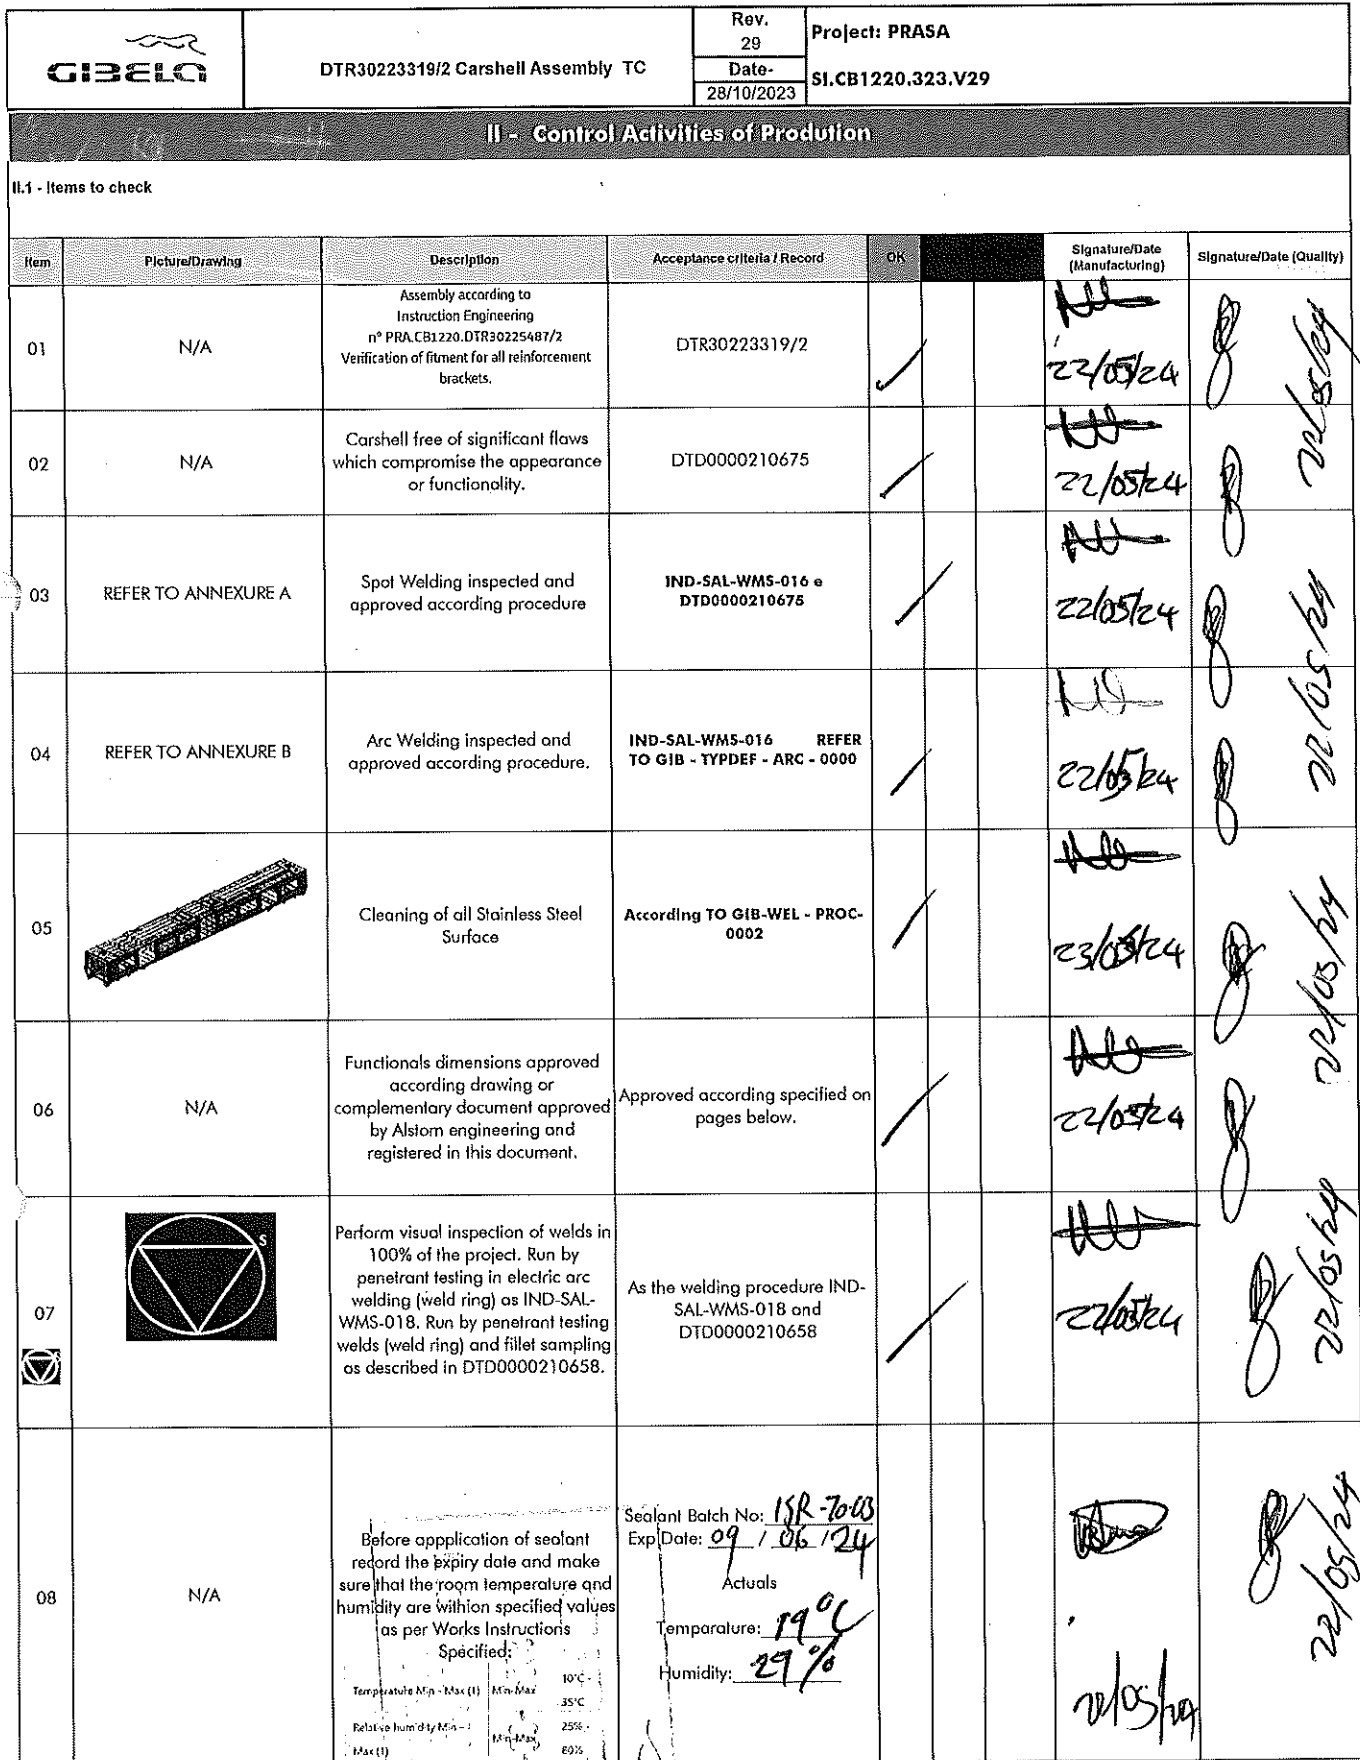 GIBELA
DTR30223319/2 Carshell Assembly TC
Rev.
29
Date-
28/10/2023
Project: PRASA
SI.CB1220.323.V29
II - Control Activities of Prodution
II.1 - Items to check
Item
Picture/Drawing
Description
Acceptance criteria / Record
OK
Signature/Date
(Manufacturing)
Signature/Date (Quality)
01
N/A
Assembly according to
Instruction Engineering
nº PRA.CB1220.DTR30225487/2
Verification of fitment for all reinforcement
brackets.
DTR30223319/2
22/05/24
22/05/24
02
N/A
Carshell free of significant flaws
which compromise the appearance
or functionality.
DTD0000210675
22/05/24
03
REFER TO ANNEXURE A
Spot Welding inspected and
approved according procedure
IND-SAL-WMS-016 e
DTD0000210675
22/05/24
22/05/24
04
REFER TO ANNEXURE B
Arc Welding inspected and
approved according procedure.
IND-SAL-WMS-016 REFER
TO GIB - TYPDEF - ARC - 0000
22/05/24
05
Cleaning of all Stainless Steel
Surface
According TO GIB-WEL - PROC-
0002
23/05/24
22/05/24
06
N/A
Functionals dimensions approved
according drawing or
complementary document approved
by Alstom engineering and
registered in this document.
Approved according specified on
pages below.
22/05/24
07
S
Perform visual inspection of welds in
100% of the project. Run by
penetrant testing in electric arc
welding (weld ring) as IND-SAL-
WMS-018. Run by penetrant testing
welds (weld ring) and fillet sampling
as described in DTD0000210658.
As the welding procedure IND-
SAL-WMS-018 and
DTD0000210658
22/05/24
22/05/24
08
N/A
Before appplication of sealant
record the expiry date and make
sure that the room temperature and
humidity are withion specified values
as per Works Instructions
Specified:
Temperature Min - Max (1) Min-Max 10°C -
35°C
Relative humidity Min -
Max (1) Min-Max 25% -
60%
Sealant Batch No: ISR-70-03
Exp Date: 09 / 06 / 24
Actuals
Temparature: 19°C
Humidity: 29%
22/05/24
22/05/24